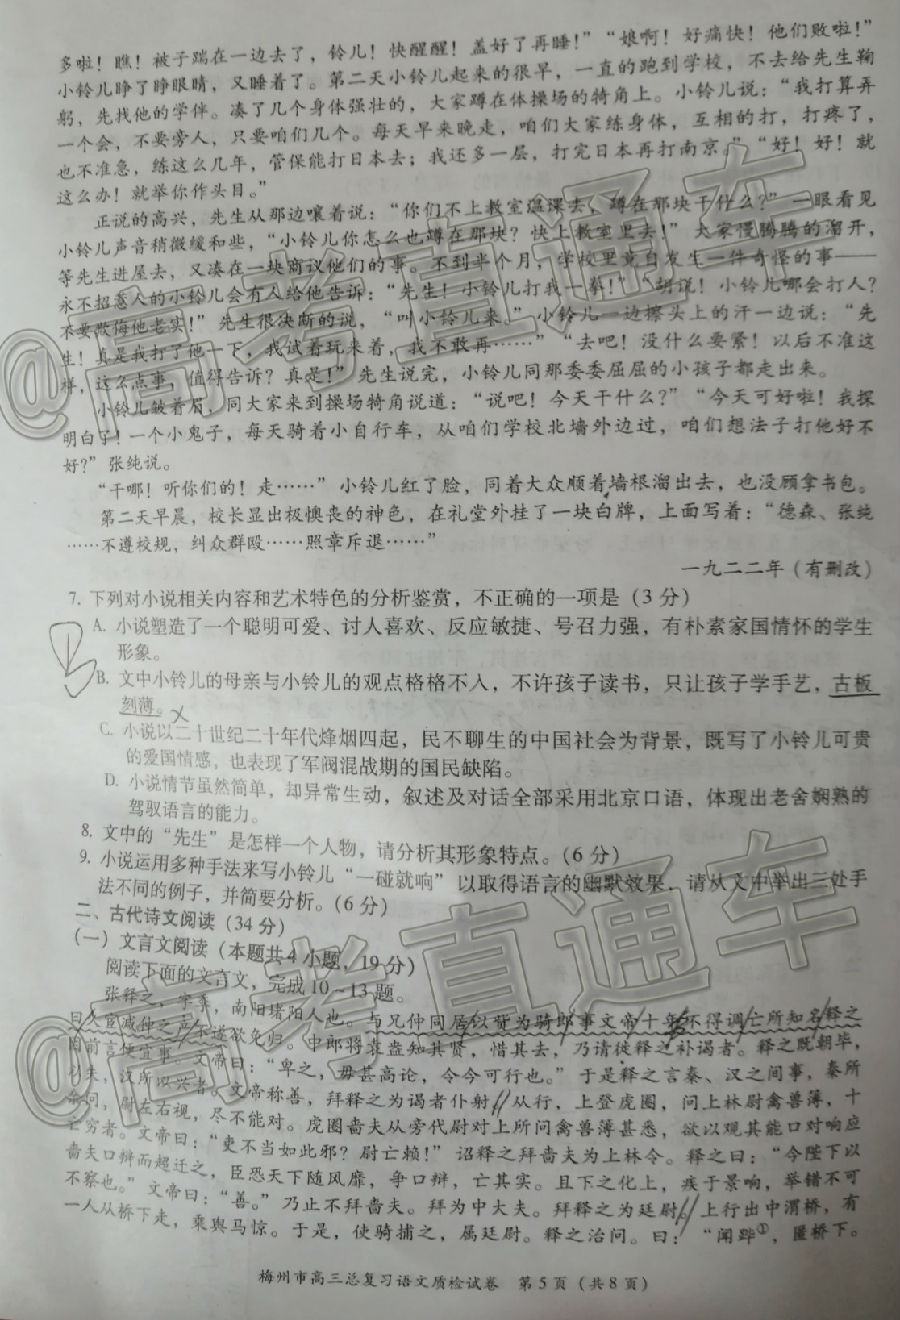 多啦！瞧！被子踹在一边去了，铃儿！快醒醒！盖好了再睡！”“娘啊！好痛快！他们败啦！”
小铃儿睁了睁眼睛，又睡着了。第二天小铃儿起来的很早，一直的跑到学校，不去给先生鞠
躬，先找他的学伴。凑了几个身体强壮的，大家蹲在体操场的犄角上。小铃儿说：“我打算弄
一个会，不要旁人，只要咱们几个。每天早来晚走，咱们大家练身体，互相的打，打疼了，
也不准急，练这么几年，管保能打日本去；我还多一层，打完日本再打南京。”“好！好！就
这么办！就举你作头目。”
正说的高兴，先生从那边嚷着说：“你们不上教室温课去，蹲在那块干什么？”一眼看见
小铃儿声音稍微缓和些，“小铃儿你怎么也蹲在那块？快上教室里去！”大家慢腾腾的溜开，
等先生进屋去，又凑在一块商议他们的事。不到半个月，学校里竟自发生一件奇怪的事——
永不招惹人的小铃儿会有人给他告诉：“先生！小铃儿打我一拳！”“胡说！小铃儿哪会打人？
不要欺侮他老实！”先生很决断的说，“叫小铃儿来！”小铃儿一边擦头上的汗一边说：“先
生！真是我打了他一下，我试着玩来着，我不敢再……”“去吧！没什么要紧！以后不准这
样，这么点事，值得告诉？真是！”先生说完，小铃儿同那委委屈屈的小孩子都走出来。
小铃儿皱着眉，同大家来到操场犄角说道：“说吧！今天干什么？”“今天可好啦！我探
明白了！一个小鬼子，每天骑着小自行车，从咱们学校北墙外边过，咱们想法子打他好不
好？”张纯说。
“干哪！听你们的！走……”小铃儿红了脸，同着大众顺着墙根溜出去，也没顾拿书包。
第二天早晨，校长显出极懊丧的神色，在礼堂外挂了一块白牌，上面写着：“德森、张纯
……不遵校规，纠众群殴……照章斥退……”
一九二二年（有删改）
7. 下列对小说相关内容和艺术特色的分析鉴赏，不正确的一项是（3 分）
A. 小说塑造了一个聪明可爱、讨人喜欢、反应敏捷、号召力强，有朴素家国情怀的学生
形象。
B. 文中小铃儿的母亲与小铃儿的观点格格不入，不许孩子读书，只让孩子学手艺，古板
刻薄。
C. 小说以二十世纪二十年代烽烟四起，民不聊生的中国社会为背景，既写了小铃儿可贵
的爱国情感，也表现了军阀混战期的国民缺陷。
D. 小说情节虽然简单，却异常生动，叙述及对话全部采用北京口语，体现出老舍娴熟的
驾驭语言的能力。
8. 文中的“先生”是怎样一个人物，请分析其形象特点。（6 分）
9. 小说运用多种手法来写小铃儿“一碰就响”以取得语言的幽默效果，请从文中举出三处手
法不同的例子，并简要分析。（6 分）
二、古代诗文阅读（34 分）
（一）文言文阅读（本题共 4 小题，19 分）
阅读下面的文言文，完成 10～13 题。
张释之，字季，南阳堵阳人也。与兄仲同居以赀为骑郎事文帝十年不得调亡所知名释之
曰久宦减仲之产不遂欲免归。中郎将袁盎知其贤，惜其去，乃请徙释之补谒者。释之既朝毕，
因前言便宜事。文帝曰：“卑之，毋甚高论，令今可行也。”于是释之言秦、汉之间事，秦所
以失，汉所以兴者。文帝称善，拜释之为谒者仆射。从行，上登虎圈，问上林尉禽兽薄，十
余问，尉左右视，尽不能对。虎圈啬夫从旁代尉对上所问禽兽薄甚悉，欲以观其能口对响应
亡穷者。文帝曰：“吏不当如此邪？尉亡赖！”诏释之拜啬夫为上林令。释之曰：“今陛下以
啬夫口辩而超迁之，臣恐天下随风靡，争口辩，亡其实。且下之化上，疾于景响，举错不可
不察也。”文帝曰：“善。”乃止不拜啬夫。拜为中大夫。拜释之为廷尉。上行出中渭桥，有
一人从桥下走，乘舆马惊。于是，使骑捕之，属廷尉。释之治问。曰：“闻跸①，匿桥下。
梅州市高三总复习语文质检试卷 第 5 页（共 8 页）
@高考直通车
@高考直通车